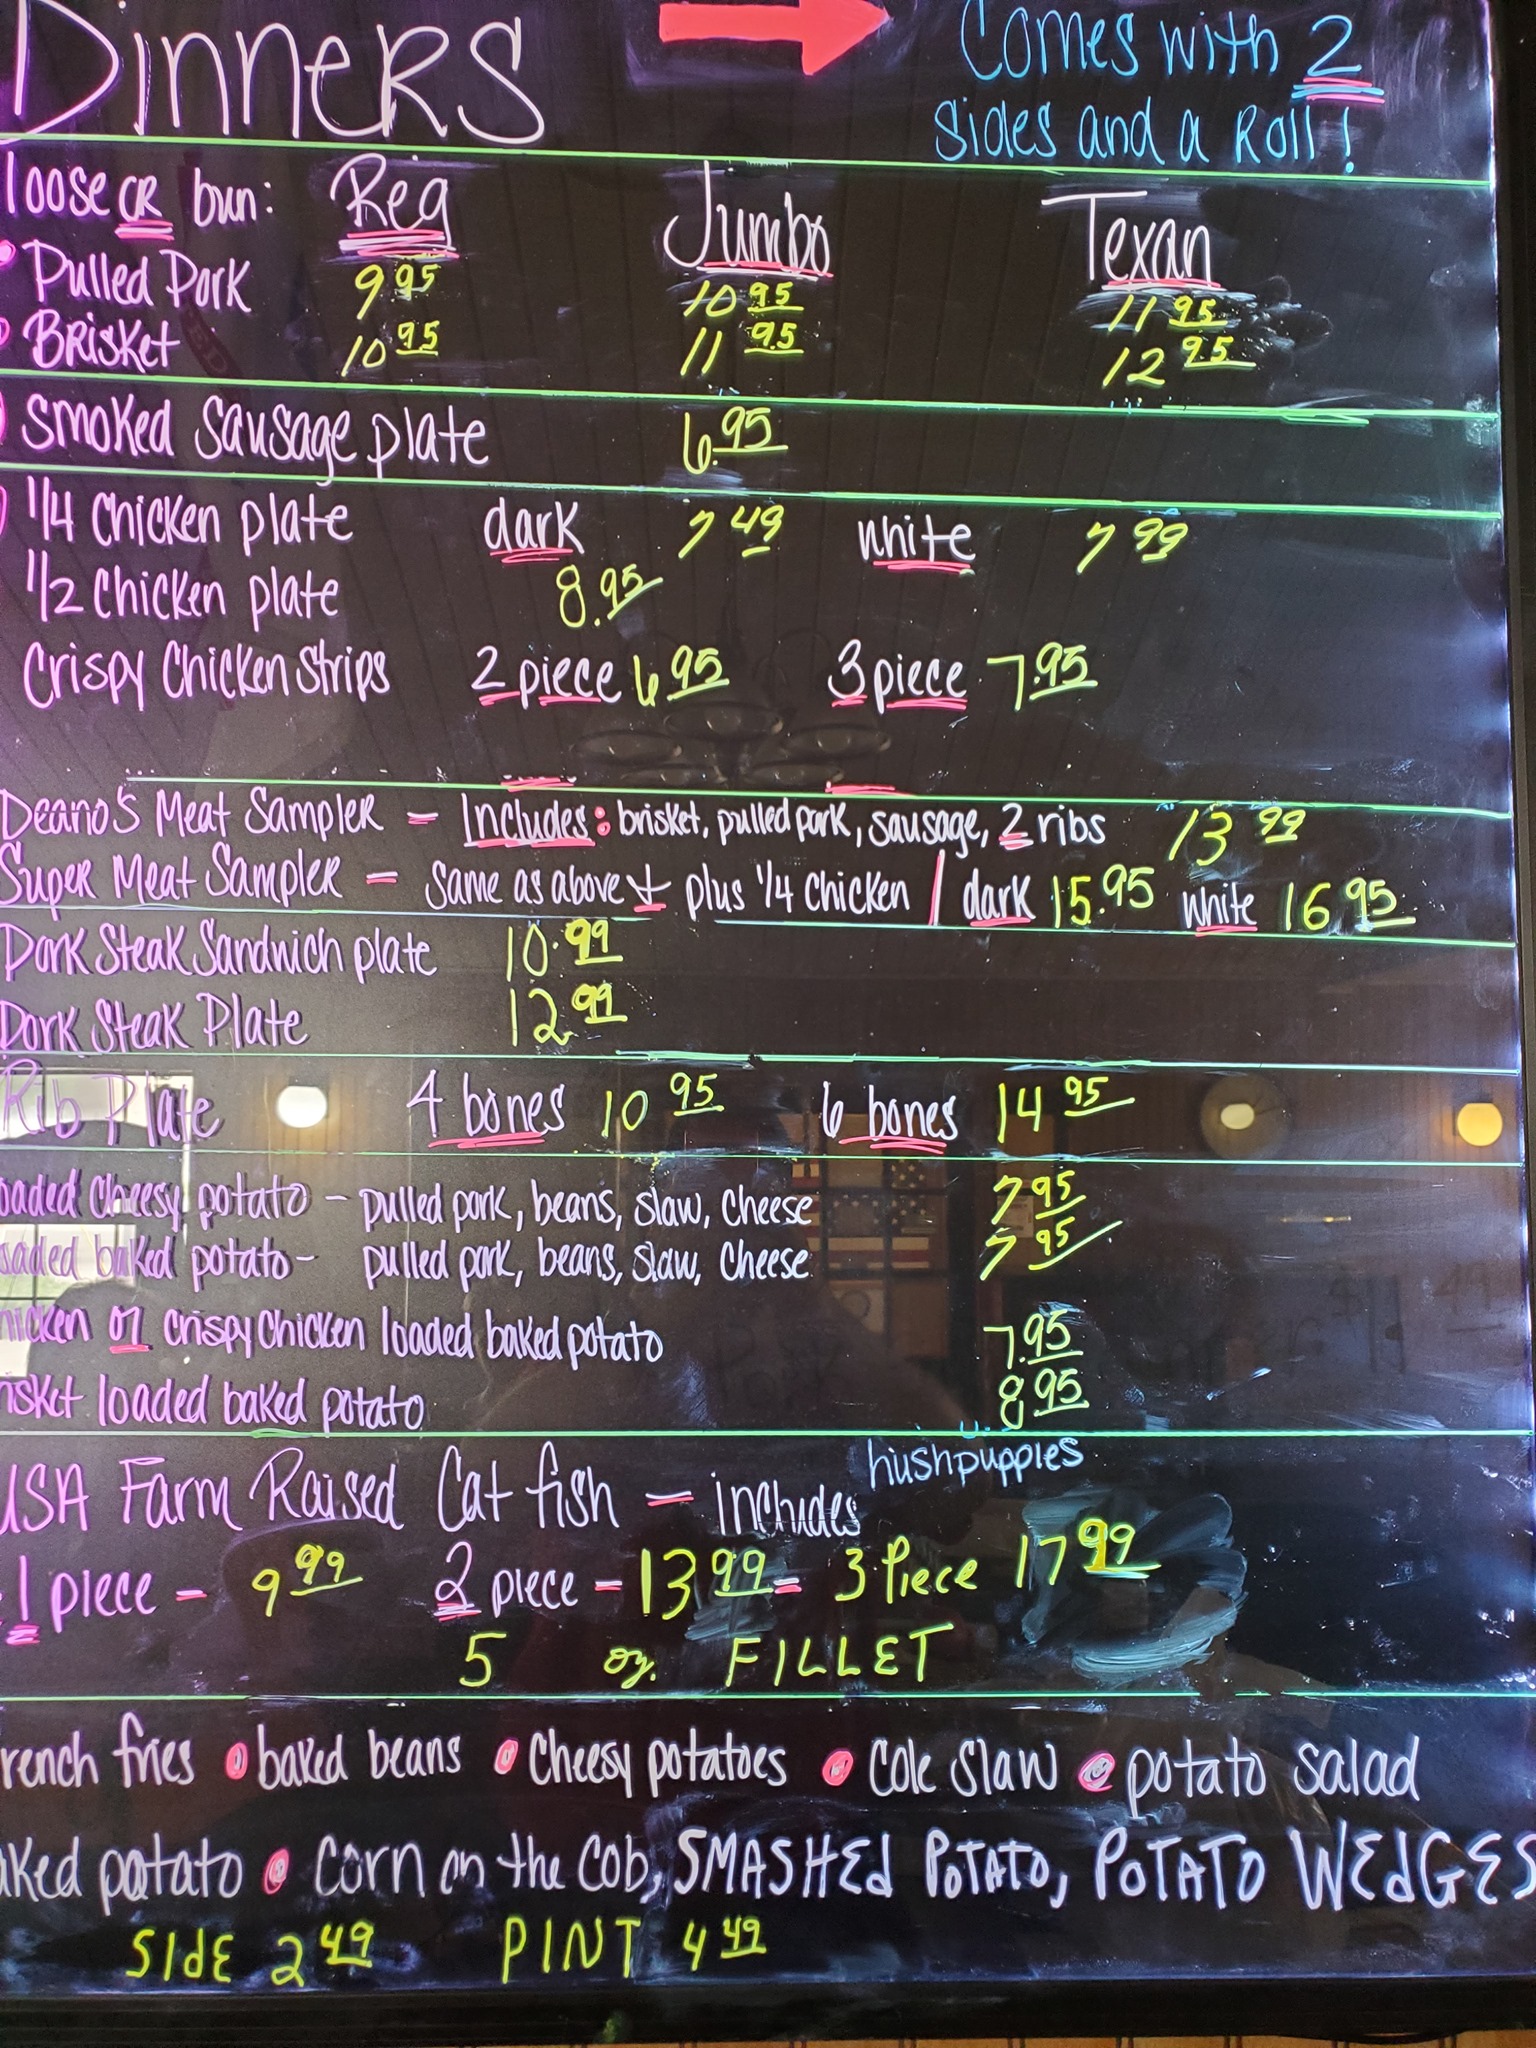 Dinners Comes with 2
sides and a Roll!
loose OR bun: Reg Jumbo Texan
Pulled Pork 9.95 10.95 11.95
Brisket 10.95 11.95 12.95
Smoked Sausage plate 6.95
1/4 Chicken plate dark 7.49 white 7.99
1/2 Chicken plate 8.95
Crispy Chicken Strips 2 piece 6.95 3 piece 7.95
Deano's Meat Sampler - Includes: brisket, pulled pork, sausage, 2 ribs 13.99
Super Meat Sampler - Same as above + plus 1/4 Chicken / dark 15.95 white 16.95
Pork Steak Sandwich plate 10.99
Pork Steak Plate 12.99
Rib Plate 4 bones 10.95 6 bones 14.95
oaded Cheesy potato - pulled pork, beans, slaw, Cheese 7.95
oaded baked potato - pulled pork, beans, slaw, Cheese 7.95
hicken or Crispy Chicken loaded baked potato 7.95
isket loaded baked potato 8.95
USA Farm Raised Cat fish - includes hushpuppies
1 piece - 9.99 2 piece - 13.99 - 3 Piece 17.99
5 oz. FILLET
rench fries • baked beans • Cheesy potatoes • Cole Slaw • potato salad
aked potato • corn on the cob, SMASHEd POTATO, POTATO WEdGES
SIdE 2.49 PINT 4.49